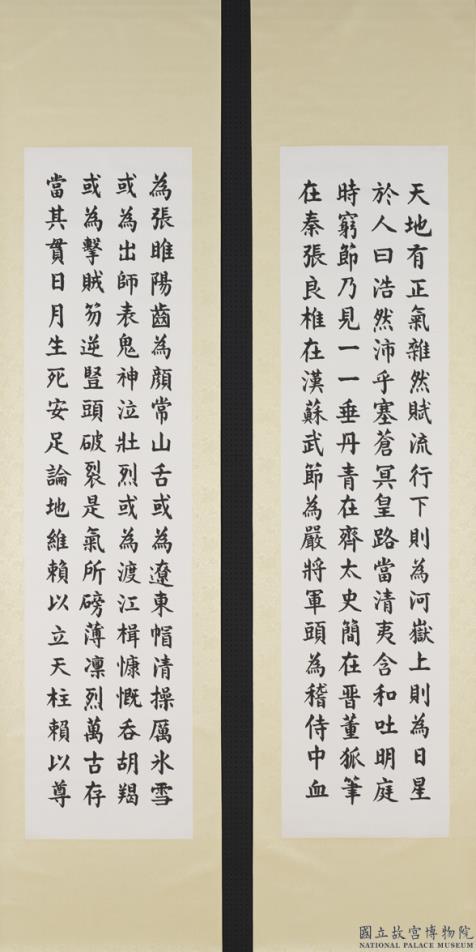 天地有正氣雜然賦流行下則為河嶽上則為日星
於人曰浩然沛乎塞蒼冥皇路當清夷含和吐明庭
時窮節乃見一一垂丹青在齊太史簡在晋董狐筆
在秦張良椎在漢蘇武節為嚴將軍頭為稽侍中血
為張睢陽齒為顔常山舌或為遼東帽清操厲氷雪
或為出師表鬼神泣壯烈或為渡江楫慷慨吞胡羯
或為擊賊笏逆豎頭破裂是氣所磅薄凛烈萬古存
當其貫日月生死安足論地維賴以立天柱賴以尊
國立故宮博物院
NATIONAL PALACE MUSEUM